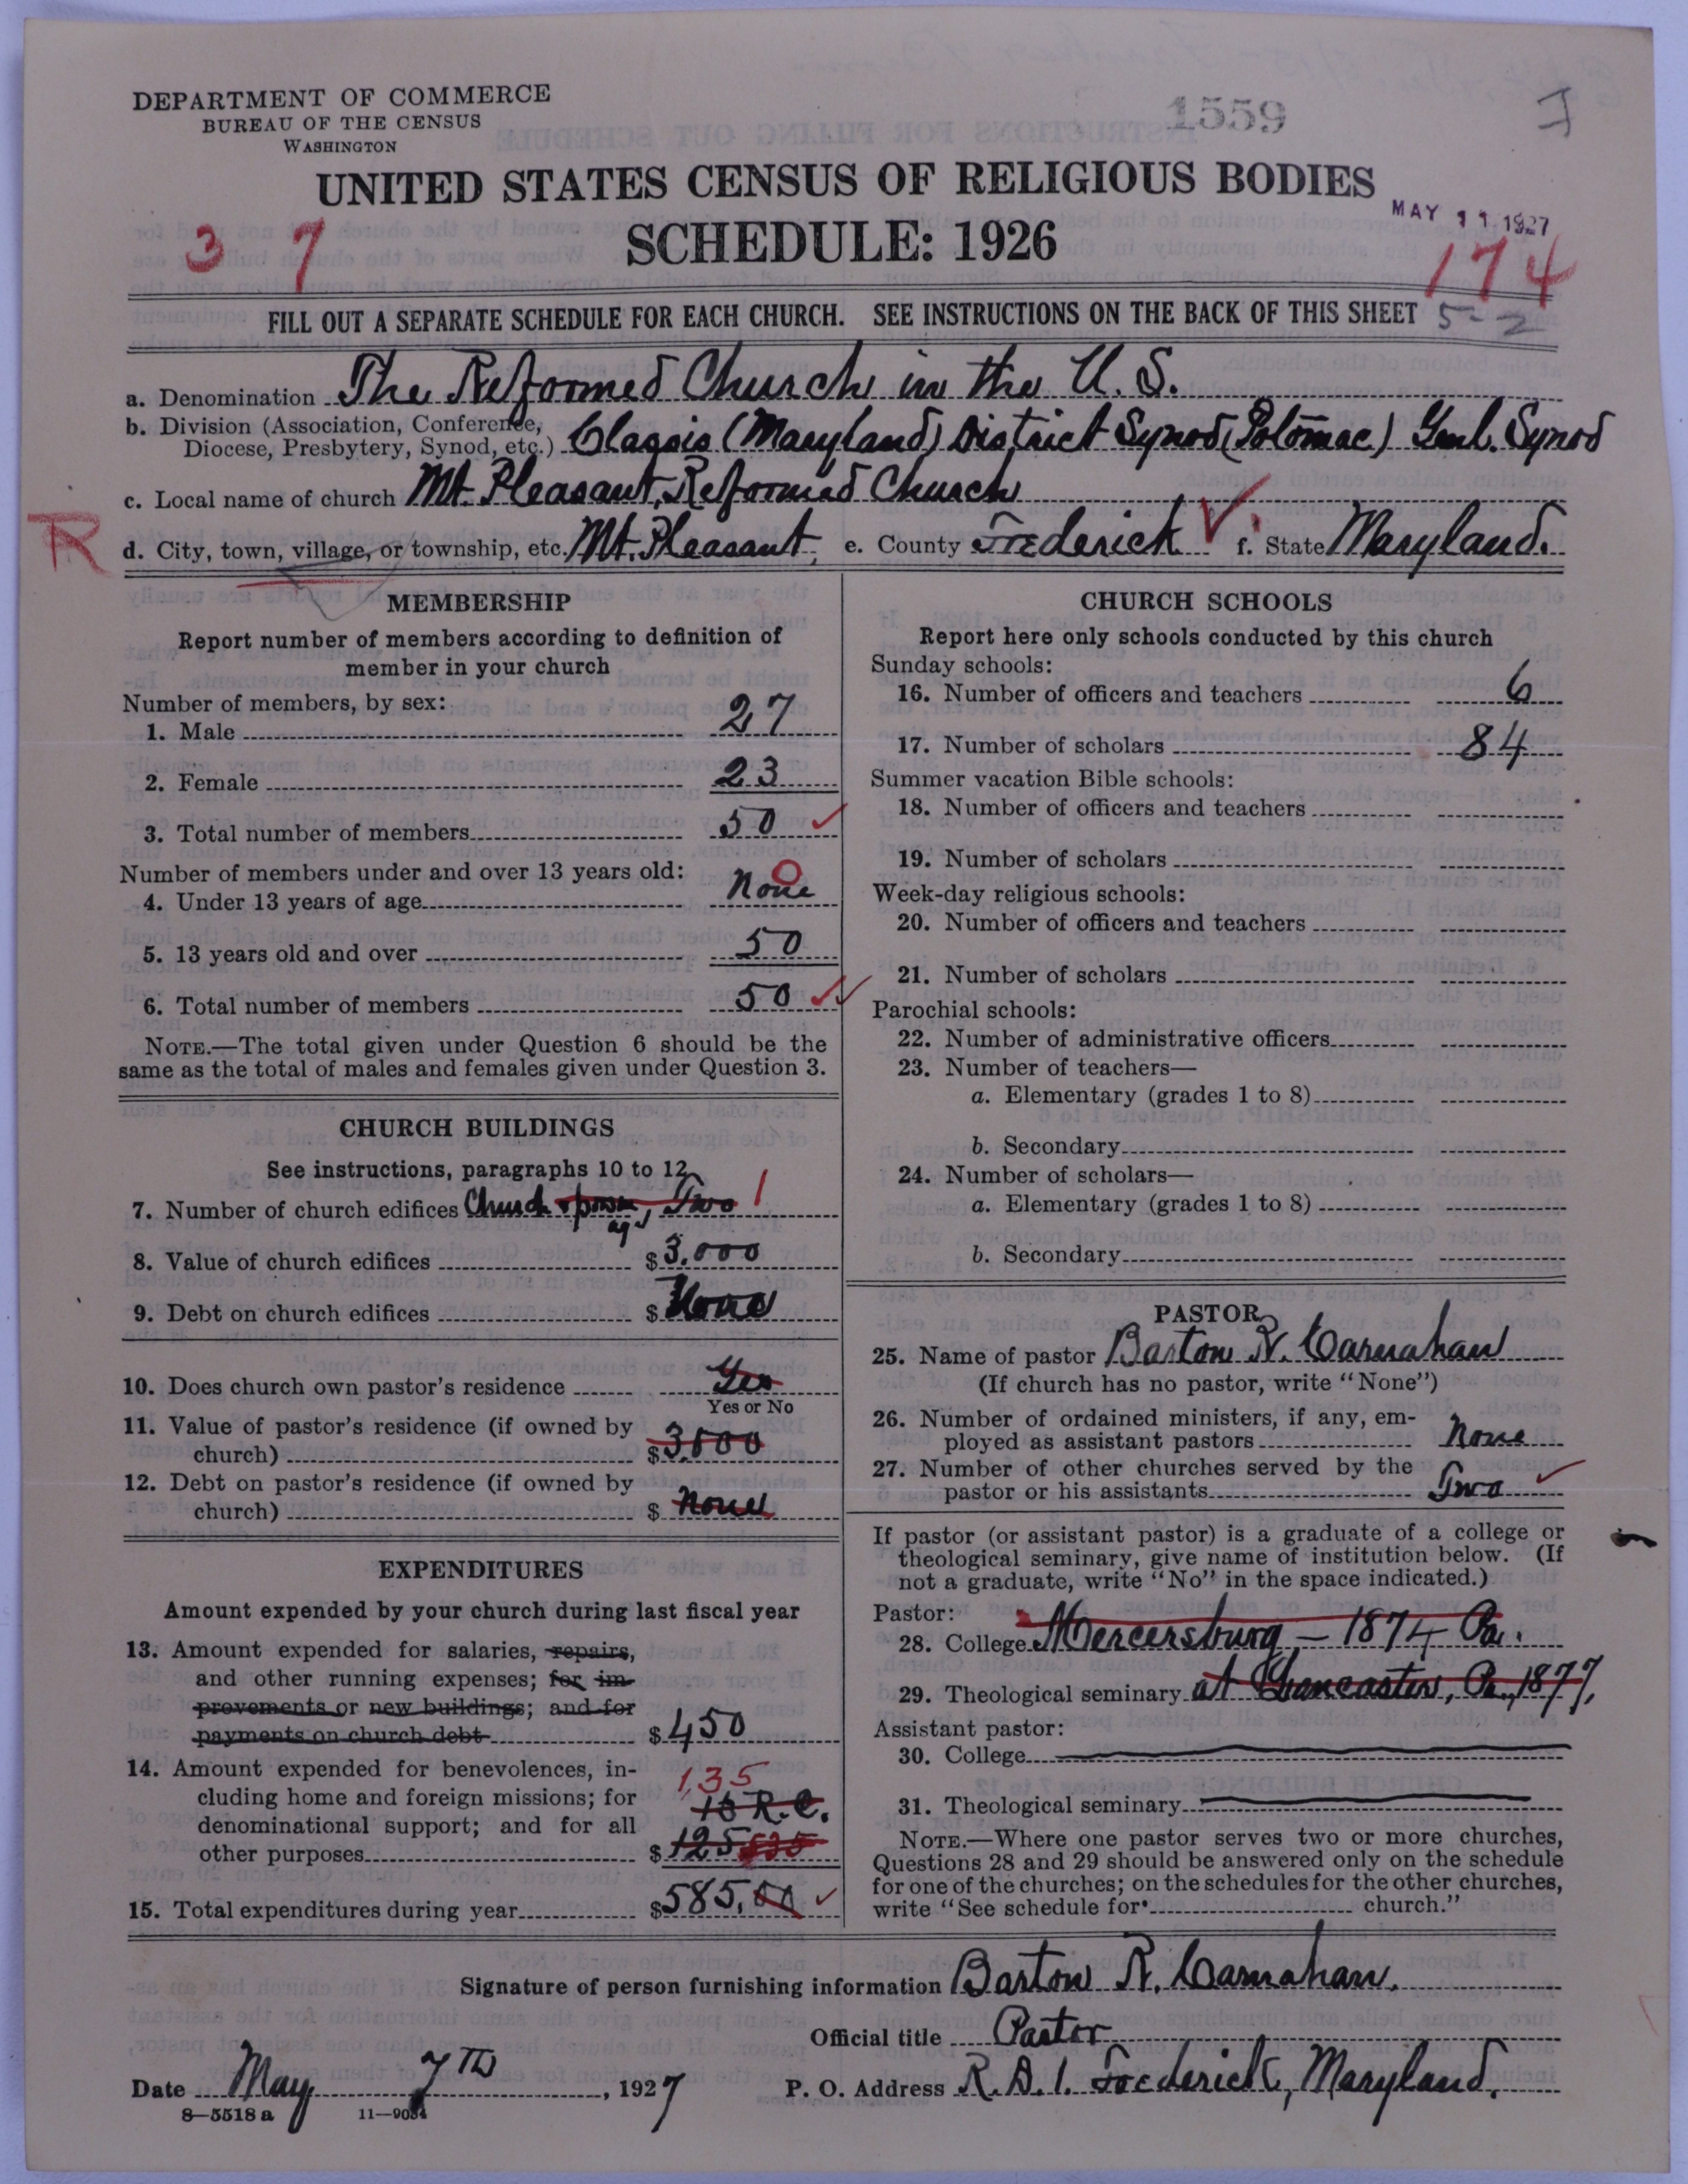 DEPARTMENT OF COMMERCE
BUREAU OF THE CENSUS
WASHINGTON
1559
UNITED STATES CENSUS OF RELIGIOUS BODIES
SCHEDULE: 1926
MAY 11 1927
3 7
174
FILL OUT A SEPARATE SCHEDULE FOR EACH CHURCH. SEE INSTRUCTIONS ON THE BACK OF THIS SHEET
5-2
a. Denomination The Reformed Church in the U. S.
b. Division (Association, Conference,
Diocese, Presbytery, Synod, etc.) Classis (Maryland) District Synod (Potomac) Genl. Synod
c. Local name of church Mt. Pleasant, Reformed Church
R
d. City, town, village, or township, etc. Mt. Pleasant, e. County Frederick f. State Maryland.
MEMBERSHIP
Report number of members according to definition of
member in your church
Number of members, by sex:
1. Male 27
2. Female 23
3. Total number of members 50
Number of members under and over 13 years old: 0
4. Under 13 years of age None
5. 13 years old and over 50
6. Total number of members 50
NOTE.—The total given under Question 6 should be the
same as the total of males and females given under Question 3.
CHURCH BUILDINGS
See instructions, paragraphs 10 to 12
7. Number of church edifices Church & parson Two 1
age
8. Value of church edifices $3.000
9. Debt on church edifices $None
10. Does church own pastor's residence Yes
Yes or No
11. Value of pastor's residence (if owned by
church) $3.500
12. Debt on pastor's residence (if owned by
church) $ None
EXPENDITURES
Amount expended by your church during last fiscal year
13. Amount expended for salaries, repairs,
and other running expenses; for im-
provements or new buildings; and for
payments on church debt $450
14. Amount expended for benevolences, in- 135
cluding home and foreign missions; for
denominational support; and for all 10 R.C.
other purposes $125
15. Total expenditures during year $585.00
CHURCH SCHOOLS
Report here only schools conducted by this church
Sunday schools:
16. Number of officers and teachers 6
17. Number of scholars 84
Summer vacation Bible schools:
18. Number of officers and teachers
19. Number of scholars
Week-day religious schools:
20. Number of officers and teachers
21. Number of scholars
Parochial schools:
22. Number of administrative officers
23. Number of teachers—
a. Elementary (grades 1 to 8)
b. Secondary
24. Number of scholars—
a. Elementary (grades 1 to 8)
b. Secondary
PASTOR
25. Name of pastor Barton R. Carnahan
(If church has no pastor, write "None")
26. Number of ordained ministers, if any, em-
ployed as assistant pastors None
27. Number of other churches served by the
pastor or his assistants Two
If pastor (or assistant pastor) is a graduate of a college or
theological seminary, give name of institution below. (If
not a graduate, write "No" in the space indicated.)
Pastor:
28. College Mercersburg – 1874 Pa.
29. Theological seminary at Lancaster, Pa., 1877,
Assistant pastor:
30. College
31. Theological seminary
NOTE.—Where one pastor serves two or more churches,
Questions 28 and 29 should be answered only on the schedule
for one of the churches; on the schedules for the other churches,
write "See schedule for church."
Signature of person furnishing information Barton R. Carnahan.
Official title Pastor
Date May 7TH, 1927 P. O. Address R.D.1. Frederick, Maryland.
8—5518 a 11—9034